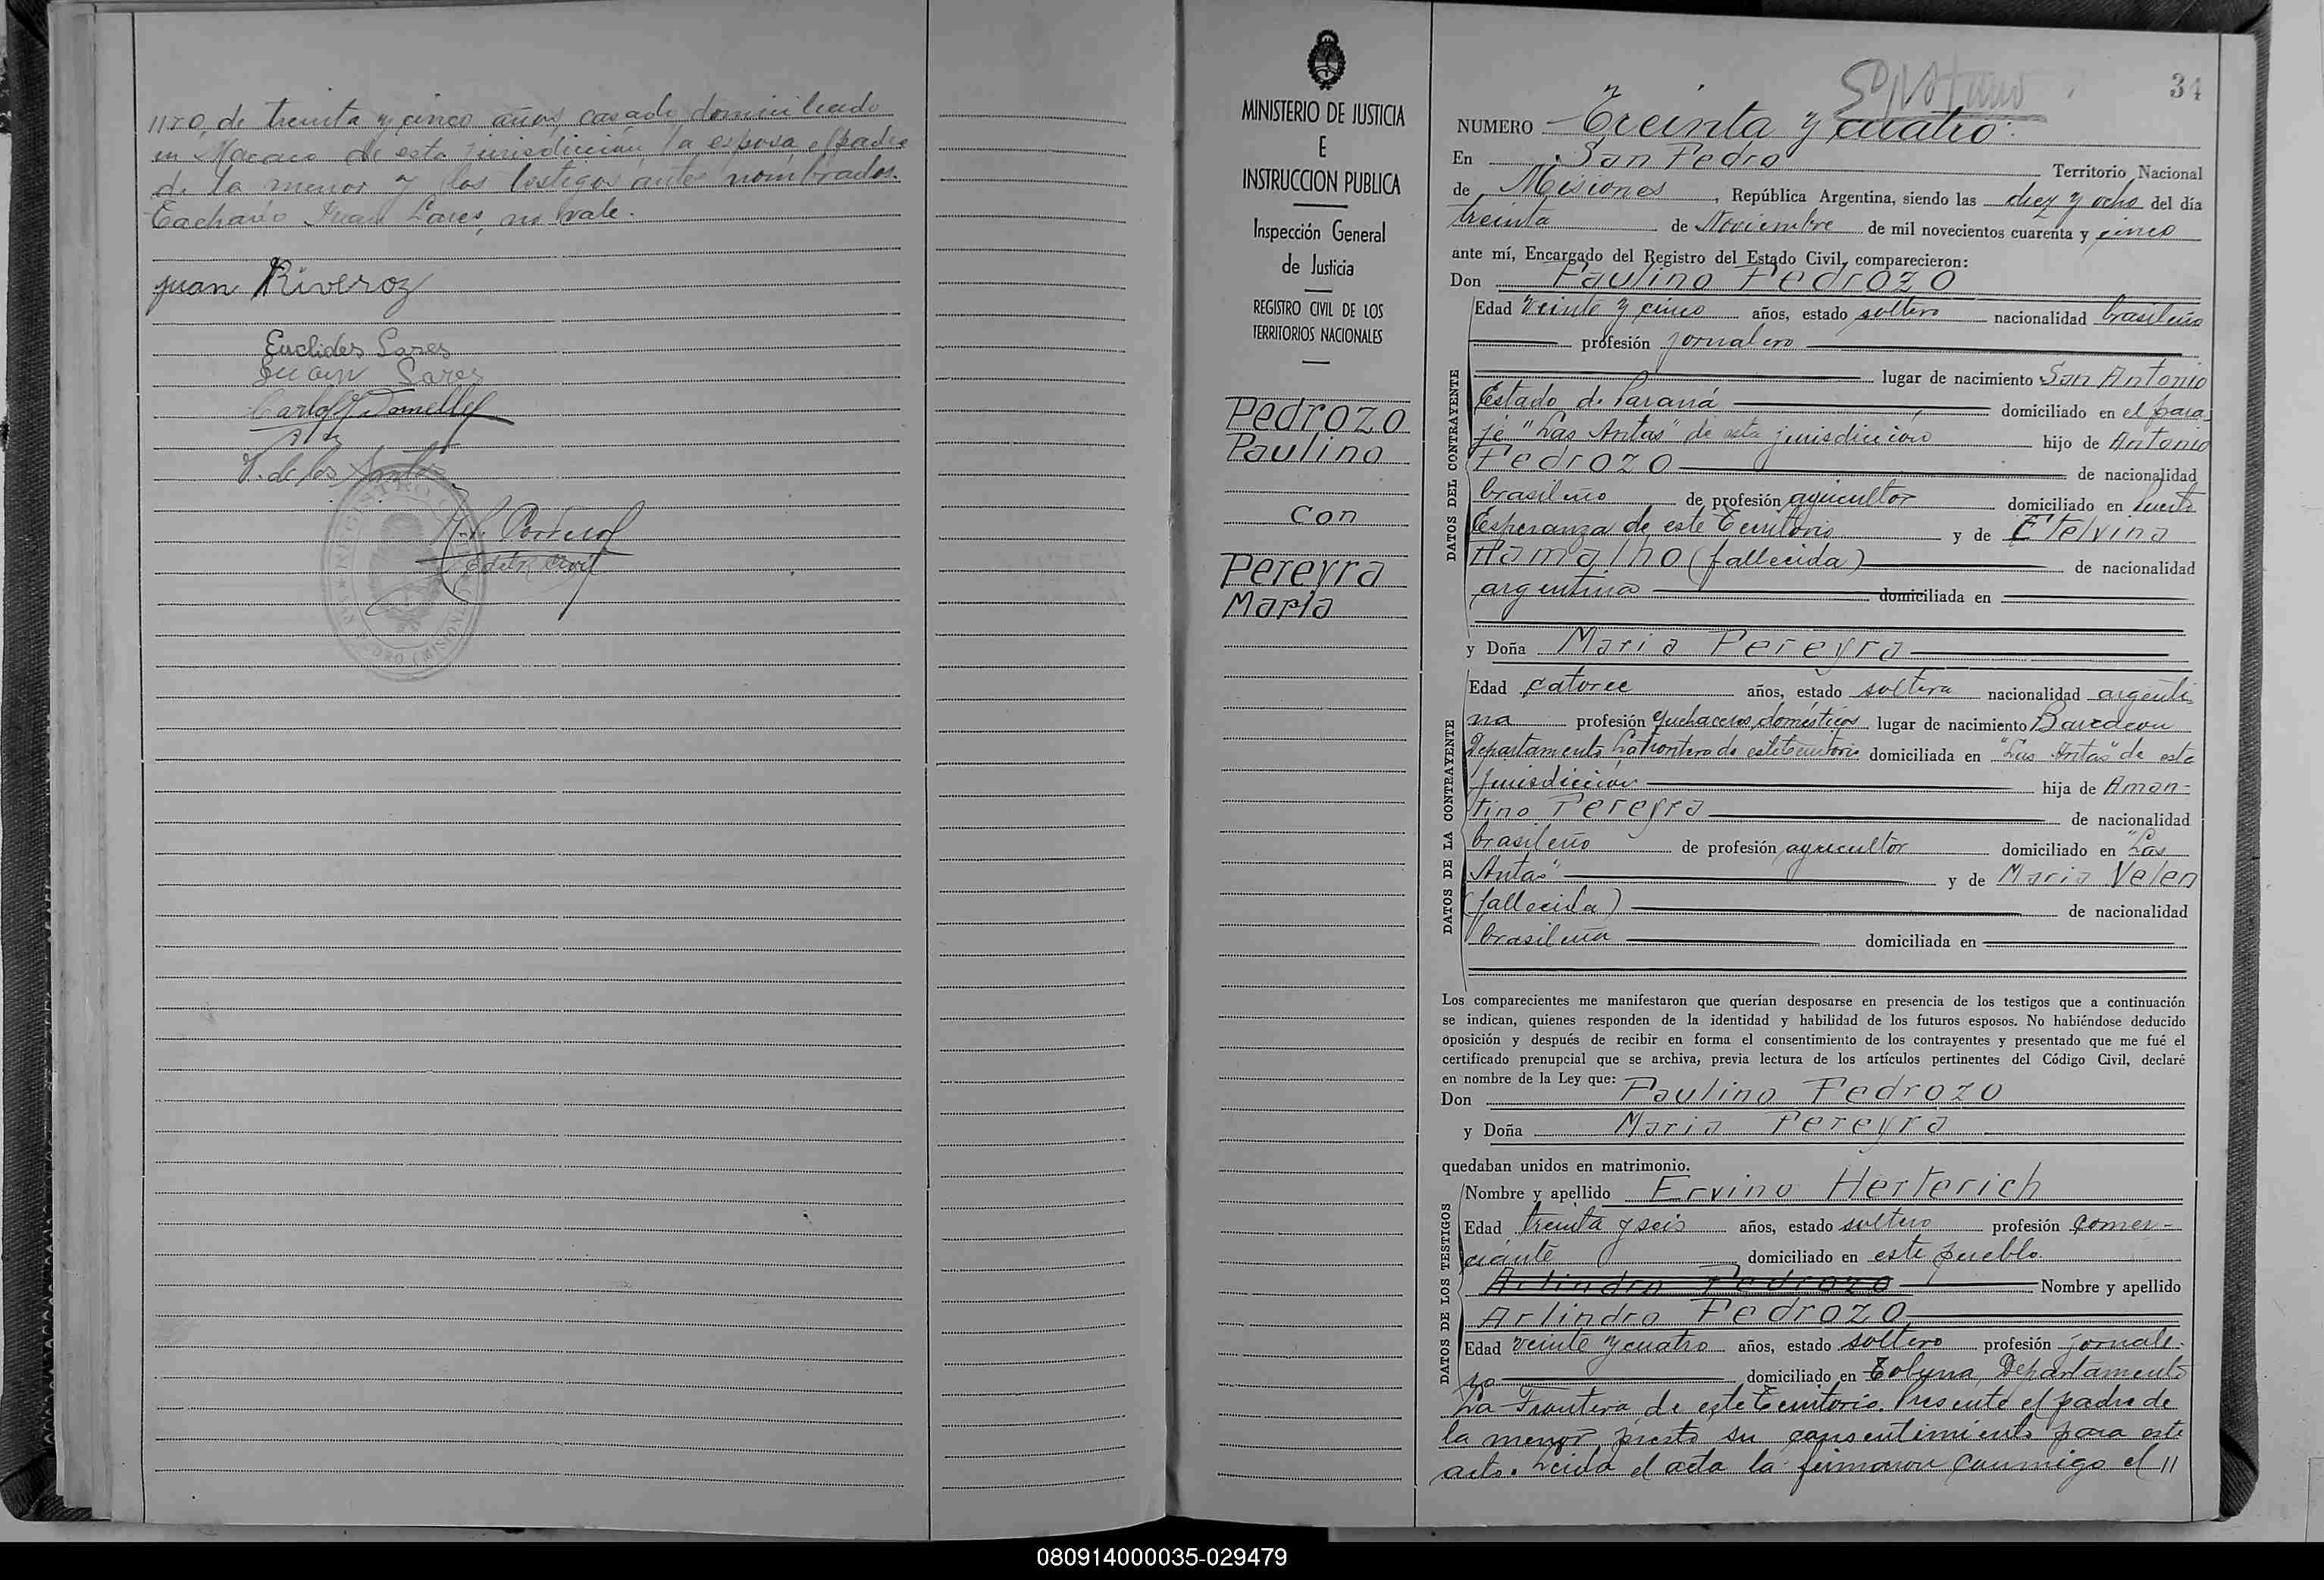 de treinta y cinco años, casado, domiciliado
en Macaco de esta jurisdicción, la esposa, el padre
de la menor y los testigos antes nombrados.
Tachado Juan Lares, no vale.
Juan Riveroz
Euclides Lares
Juan Lares
V. de los Santos
MINISTERIO DE JUSTICIA
E
INSTRUCCION PUBLICA
Inspección General
de Justicia
REGISTRO CIVIL DE LOS
TERRITORIOS NACIONALES
Pedrozo
Paulino
con
Pereyra
Maria
34
NUMERO Treinta y cuatro
En San Pedro Territorio Nacional
de Misiones, República Argentina, siendo las diez y ocho del día
treinta de Noviembre de mil novecientos cuarenta y cinco
ante mí, Encargado del Registro del Estado Civil, comparecieron:
Don Paulino Pedrozo
DATOS DEL CONTRAYENTE
Edad veinte y cinco años, estado soltero nacionalidad brasileño
profesión jornalero
lugar de nacimiento San Antonio
Estado de Paraná domiciliado en el para
je "Las Antas" de esta jurisdicción hijo de Antonio
Pedrozo de nacionalidad
brasileño de profesión agricultor domiciliado en Puerto
Esperanza de este Territorio y de Etelvina
Ramalho (fallecida) de nacionalidad
argentina domiciliada en
y Doña Maria Pereyra
DATOS DE LA CONTRAYENTE
Edad catorce años, estado soltera nacionalidad argenti
na profesión quehaceres domésticos lugar de nacimiento Barracon
Departamento La Frontera de este Territorio domiciliada en "Las Antas" de esta
jurisdicción hija de Aman-
tino Pereyra de nacionalidad
brasileño de profesión agricultor domiciliado en "Las
Antas" y de Maria Velen
(fallecida) de nacionalidad
brasileña domiciliada en
Los comparecientes me manifestaron que querían desposarse en presencia de los testigos que a continuación
se indican, quienes responden de la identidad y habilidad de los futuros esposos. No habiéndose deducido
oposición y después de recibir en forma el consentimiento de los contrayentes y presentado que me fué el
certificado prenupcial que se archiva, previa lectura de los artículos pertinentes del Código Civil, declaré
en nombre de la Ley que:
Don Paulino Pedrozo
y Doña Maria Pereyra
quedaban unidos en matrimonio.
DATOS DE LOS TESTIGOS
Nombre y apellido Ervino Herterich
Edad treinta y seis años, estado soltero profesión comer-
ciante domiciliado en este pueblo.
Arlindro Pedrozo Nombre y apellido
Arlindro Pedrozo
Edad veinte y cuatro años, estado soltero profesión jornale-
ro domiciliado en Tobuna, Departamento
La Frontera de este Territorio. Presente el padre de
la menor prestó su consentimiento para este
acto. Leida el acta la firmaron conmigo el //
080914000035-029479